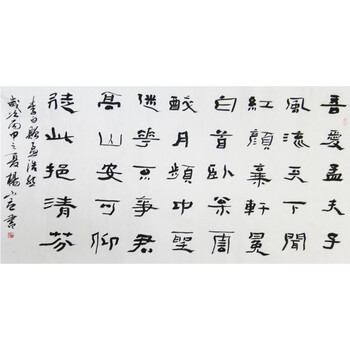 吾愛孟夫子
風流天下聞
紅顏棄軒冕
白首臥松雲
醉月頻中聖
迷華不事君
高山安可仰
徒此挹清芬
李白贈孟浩然
歲次丙申之夏楊小書